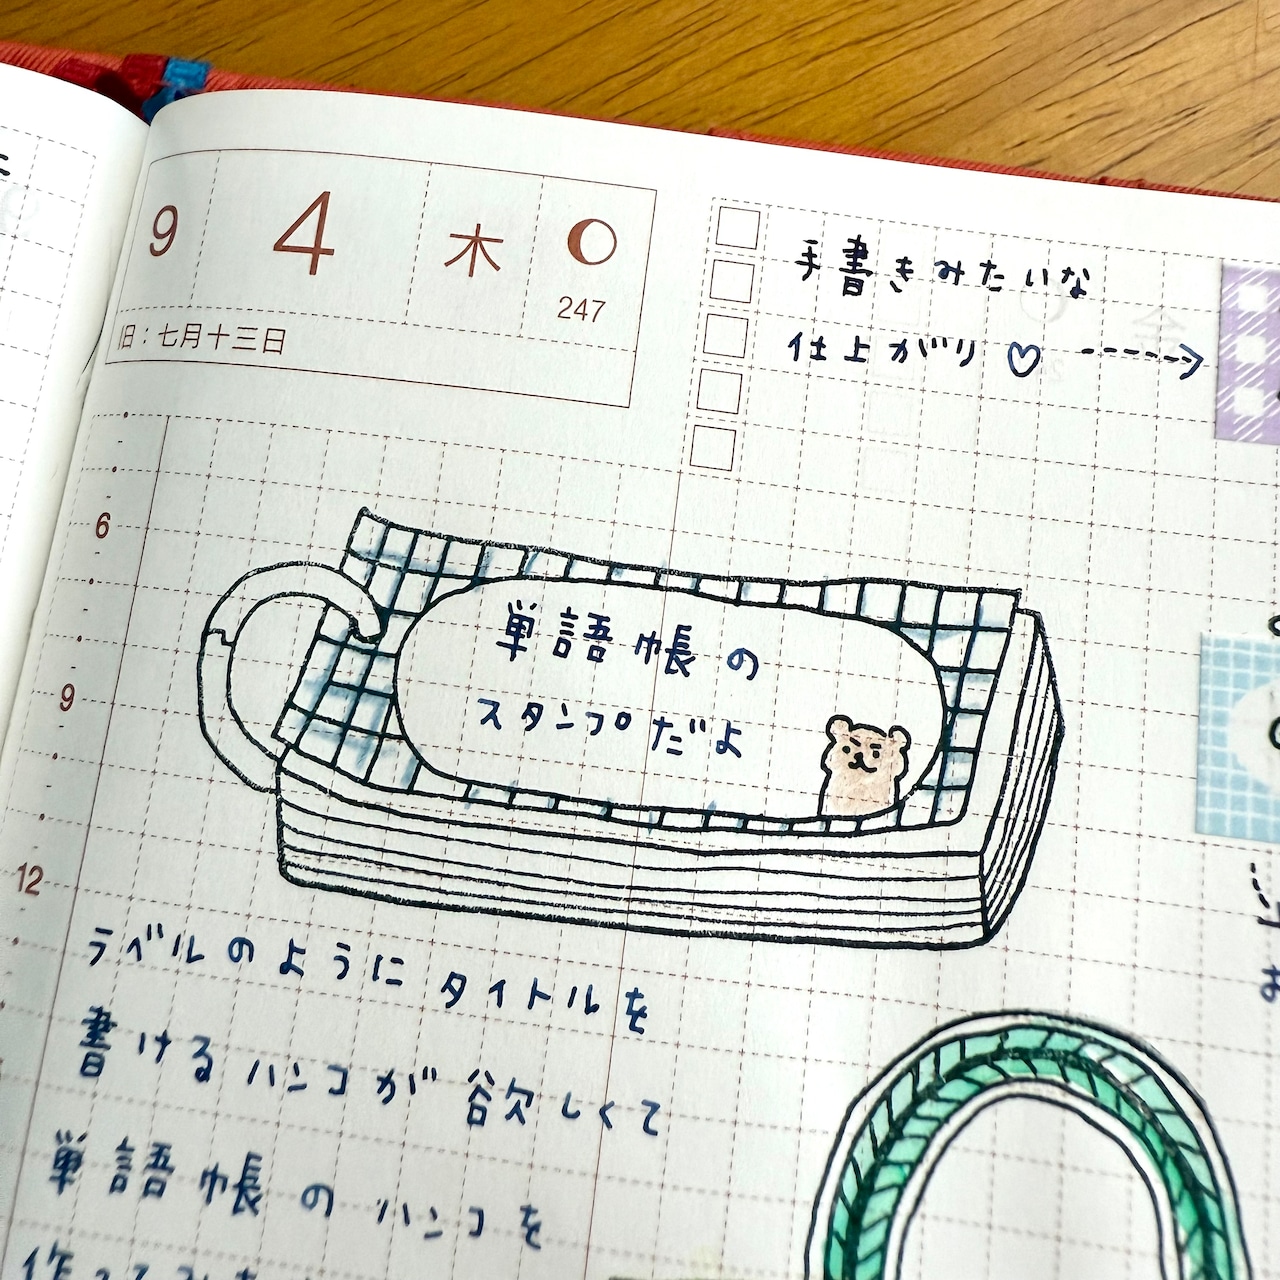 9 4 木
247
旧：七月十三日
手書きみたいな
仕上がり♡---->
6
単語帳の
スタンプだよ
9
12
ラベルのようにタイトルを
書けるハンコが欲しくて
単語帳のハンコを